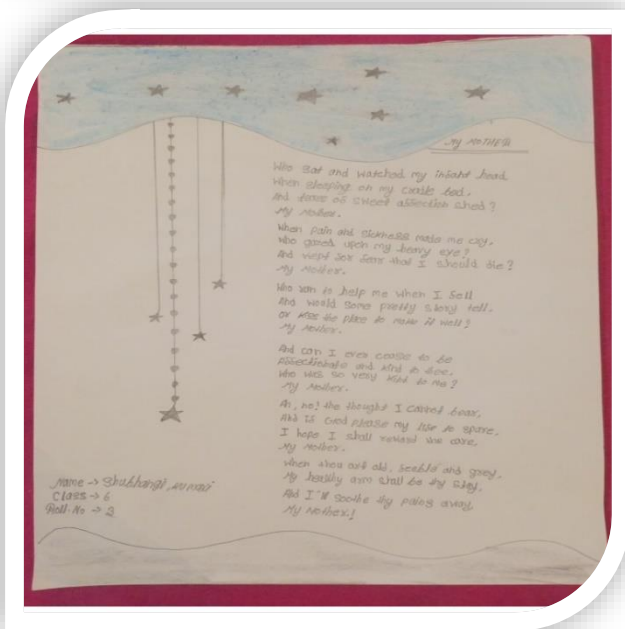 My MOTHER
Who sat and watched my infant head
When sleeping on my cradle bed.
And tears of sweet affection shed?
My Mother.
When pain and sickness made me cry.
Who gazed upon my heavy eye?
And wept for fear that I should die?
My Mother.
Who ran to help me when I fell
And would some pretty story tell.
Or kiss the place to make it well?
My Mother.
And can I ever cease to be
affectionate and kind to thee.
Who was so very kind to me?
My Mother.
Ah, no! the thought I cannot bear,
And if God please my life to spare.
I hope I shall reward the care.
My Mother.
When thou art old, feeble and grey.
My healthy arm shall be thy stay.
And I'll soothe thy pains away.
My Mother!
Name → Shubhangi kumari
Class → 6
Roll. No → 2